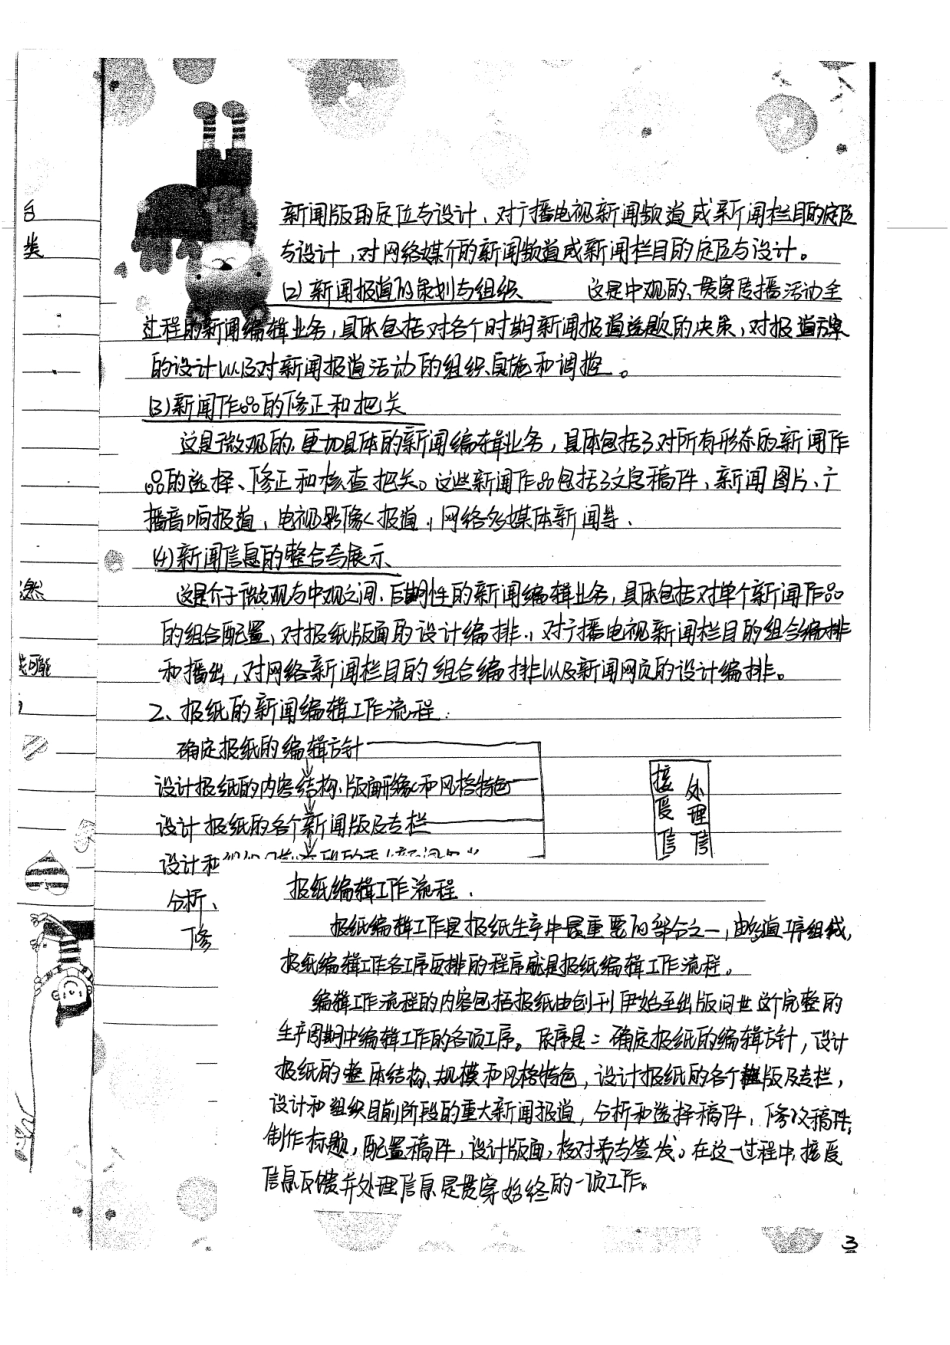 新闻版面的定位与设计、对广播电视新闻频道或新闻栏目的定位
与设计，对网络媒介的新闻频道或新闻栏目的定位与设计。
(2)新闻报道的策划与组织 这是中观的、贯穿传播活动全
过程的新闻编辑业务，具体包括对各个时期新闻报道选题的决策，对报道方案
的设计以及对新闻报道活动的组织、实施和调控。
(3)新闻作品的修正和把关
这是微观的、更加具体的新闻编辑业务，具体包括了对所有形态的新闻作
品的选择、修正和核查把关。这些新闻作品包括了文字稿件、新闻图片、广
播音响报道，电视影像报道，网络多媒体新闻等.
(4)新闻信息的整合与展示
这是介于微观与中观之间、后期性的新闻编辑业务，具体包括对单个新闻作品
的组合配置，对报纸版面的设计编排，对广播电视新闻栏目的组合编排
和播出，对网络新闻栏目的组合编排以及新闻网页的设计编排。
2、报纸的新闻编辑工作流程：
确定报纸的编辑方针
设计报纸的内容结构、版面形象和风格特色
设计报纸的各个新闻版及专栏
设计和
分析、
修
接受信
处理信
报纸编辑工作流程.
报纸编辑工作是报纸生产中最重要的部分之一，由多道工序组成，
报纸编辑工作各工序安排的程序就是报纸编辑工作流程。
编辑工作流程的内容包括报纸由创刊伊始至出版问世这个完整的
生产周期中编辑工作的各项工序。顺序是：确定报纸的编辑方针，设计
报纸的整体结构、规模和风格特色，设计报纸的各个版及专栏，
设计和组织目前阶段的重大新闻报道，分析和选择稿件，修改稿件，
制作标题，配置稿件，设计版面，校对与签发。在这一过程中，接受
信息反馈并处理信息是贯穿始终的一项工作。
台
类
然
共可能
3